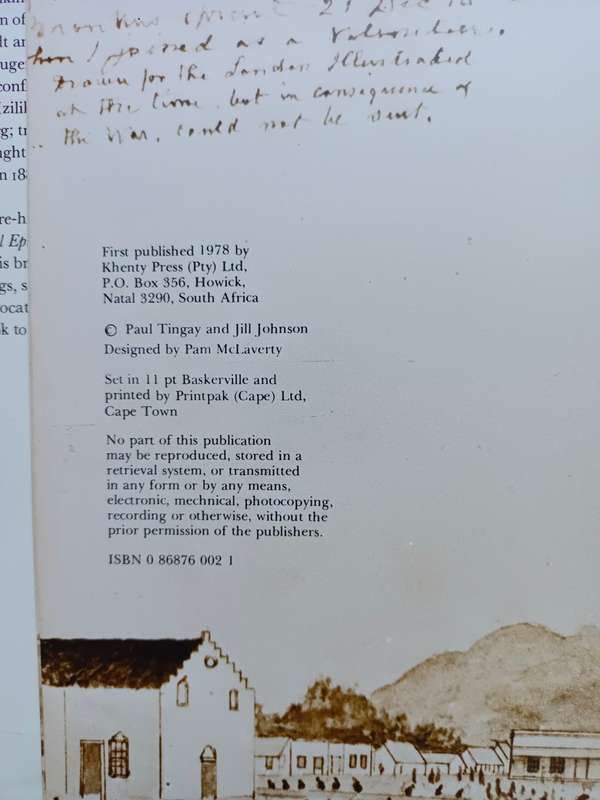 when I joined as a Volunteer.
Drawn for the London Illustrated
at the time, but in consequence of
the War, could not be sent.
First published 1978 by
Khenty Press (Pty) Ltd,
P.O. Box 356, Howick,
Natal 3290, South Africa
© Paul Tingay and Jill Johnson
Designed by Pam McLaverty
Set in 11 pt Baskerville and
printed by Printpak (Cape) Ltd,
Cape Town
No part of this publication
may be reproduced, stored in a
retrieval system, or transmitted
in any form or by any means,
electronic, mechnical, photocopying,
recording or otherwise, without the
prior permission of the publishers.
ISBN 0 86876 002 1